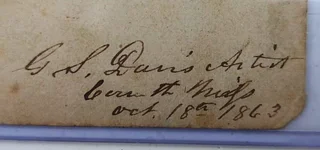 G S. Davis Artist
Corinth Miss
Oct. 18th 1863